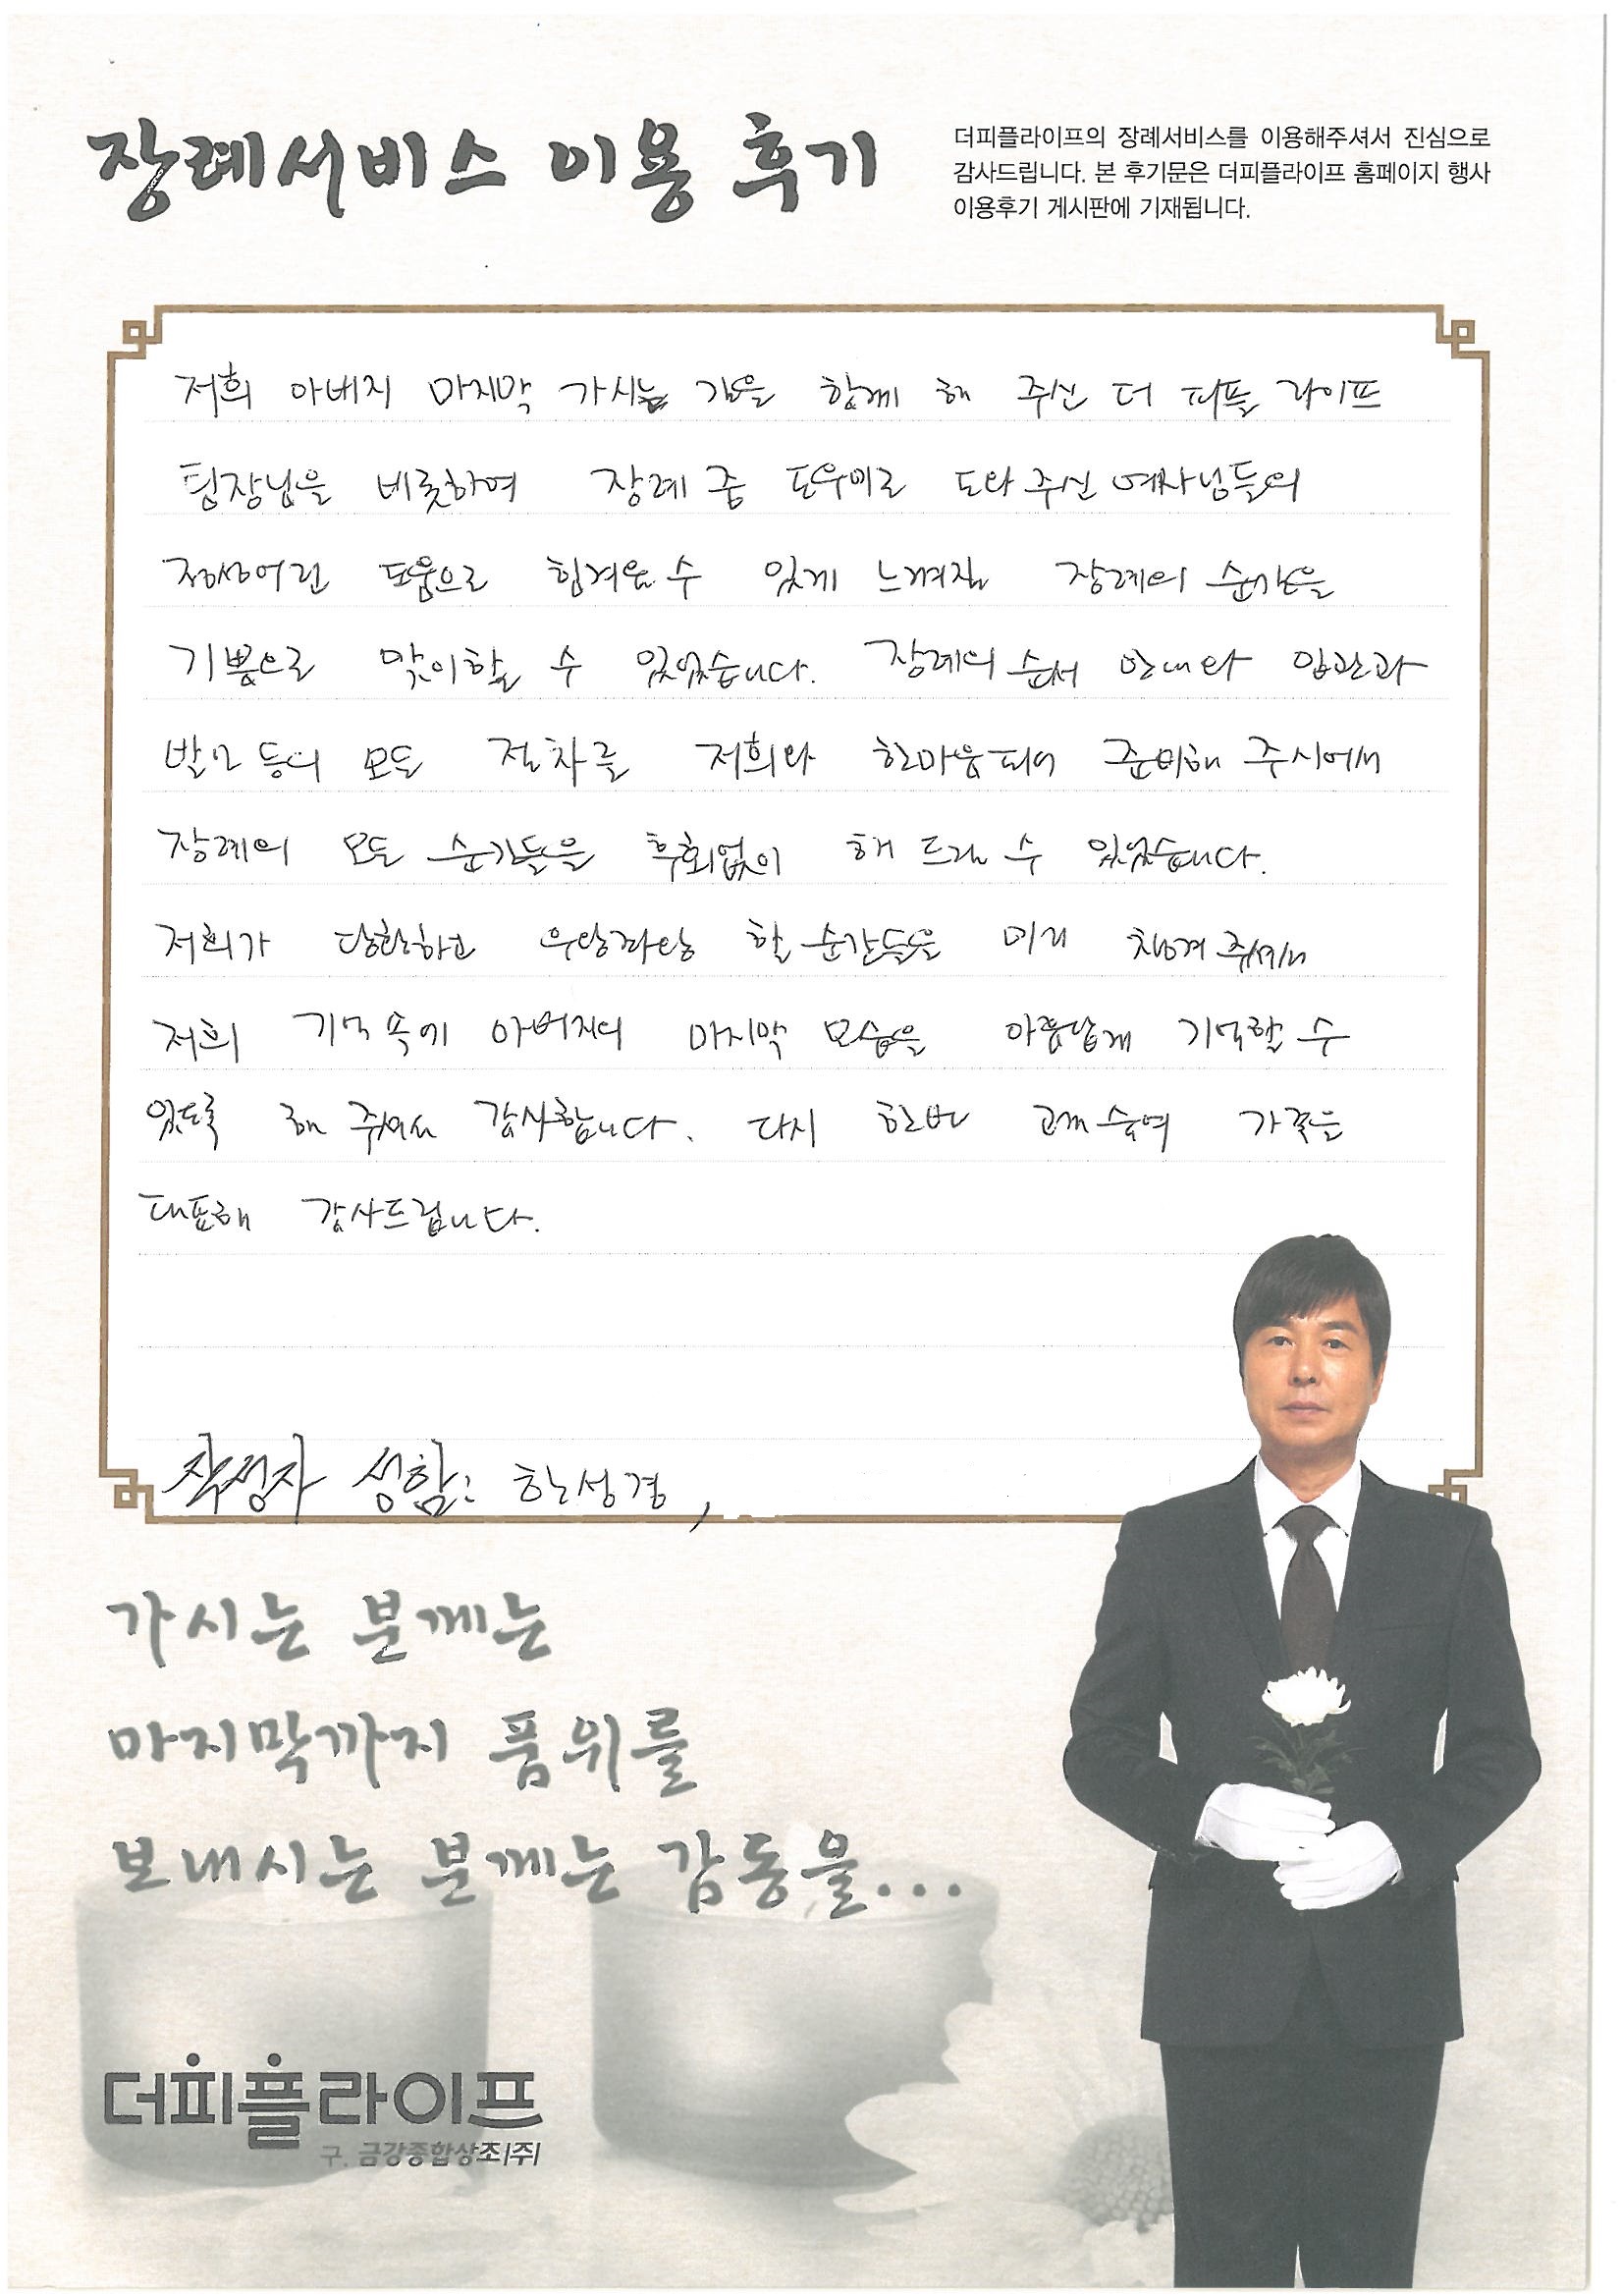 장례서비스 이용 후기
더피플라이프의 장례서비스를 이용해주셔서 진심으로
감사드립니다. 본 후기문은 더피플라이프 홈페이지 행사
이용후기 게시판에 기재됩니다.
저희 아버지 마지막 가시는 길을 함께 해 주신 더 피플 라이프
팀장님을 비롯하여 장례 중 도우미로 도와 주신 여사님들의
정성어린 도움으로 힘겨울 수 있게 느껴질 장례의 순간을
기쁨으로 맞이할 수 있었습니다. 장례의 순서 안내와 입관과
발인 등의 모든 절차를 저희와 한마음 되어 준비해 주시어서
장례의 모든 순간들을 후회없이 해 드릴 수 있었습니다.
저희가 당황하고 우왕좌왕 할 순간들을 미리 챙겨 주셔서
저희 기억 속에 아버지의 마지막 모습을 아름답게 기억할 수
있도록 해 주셔서 감사합니다. 다시 한번 가족을
대표해 감사드립니다.
작성자 성함: 한성경,
가시는 분께는
마지막까지 품위를
보내시는 분께는 감동을...
더피플라이프
구. 금강종합상조(주)